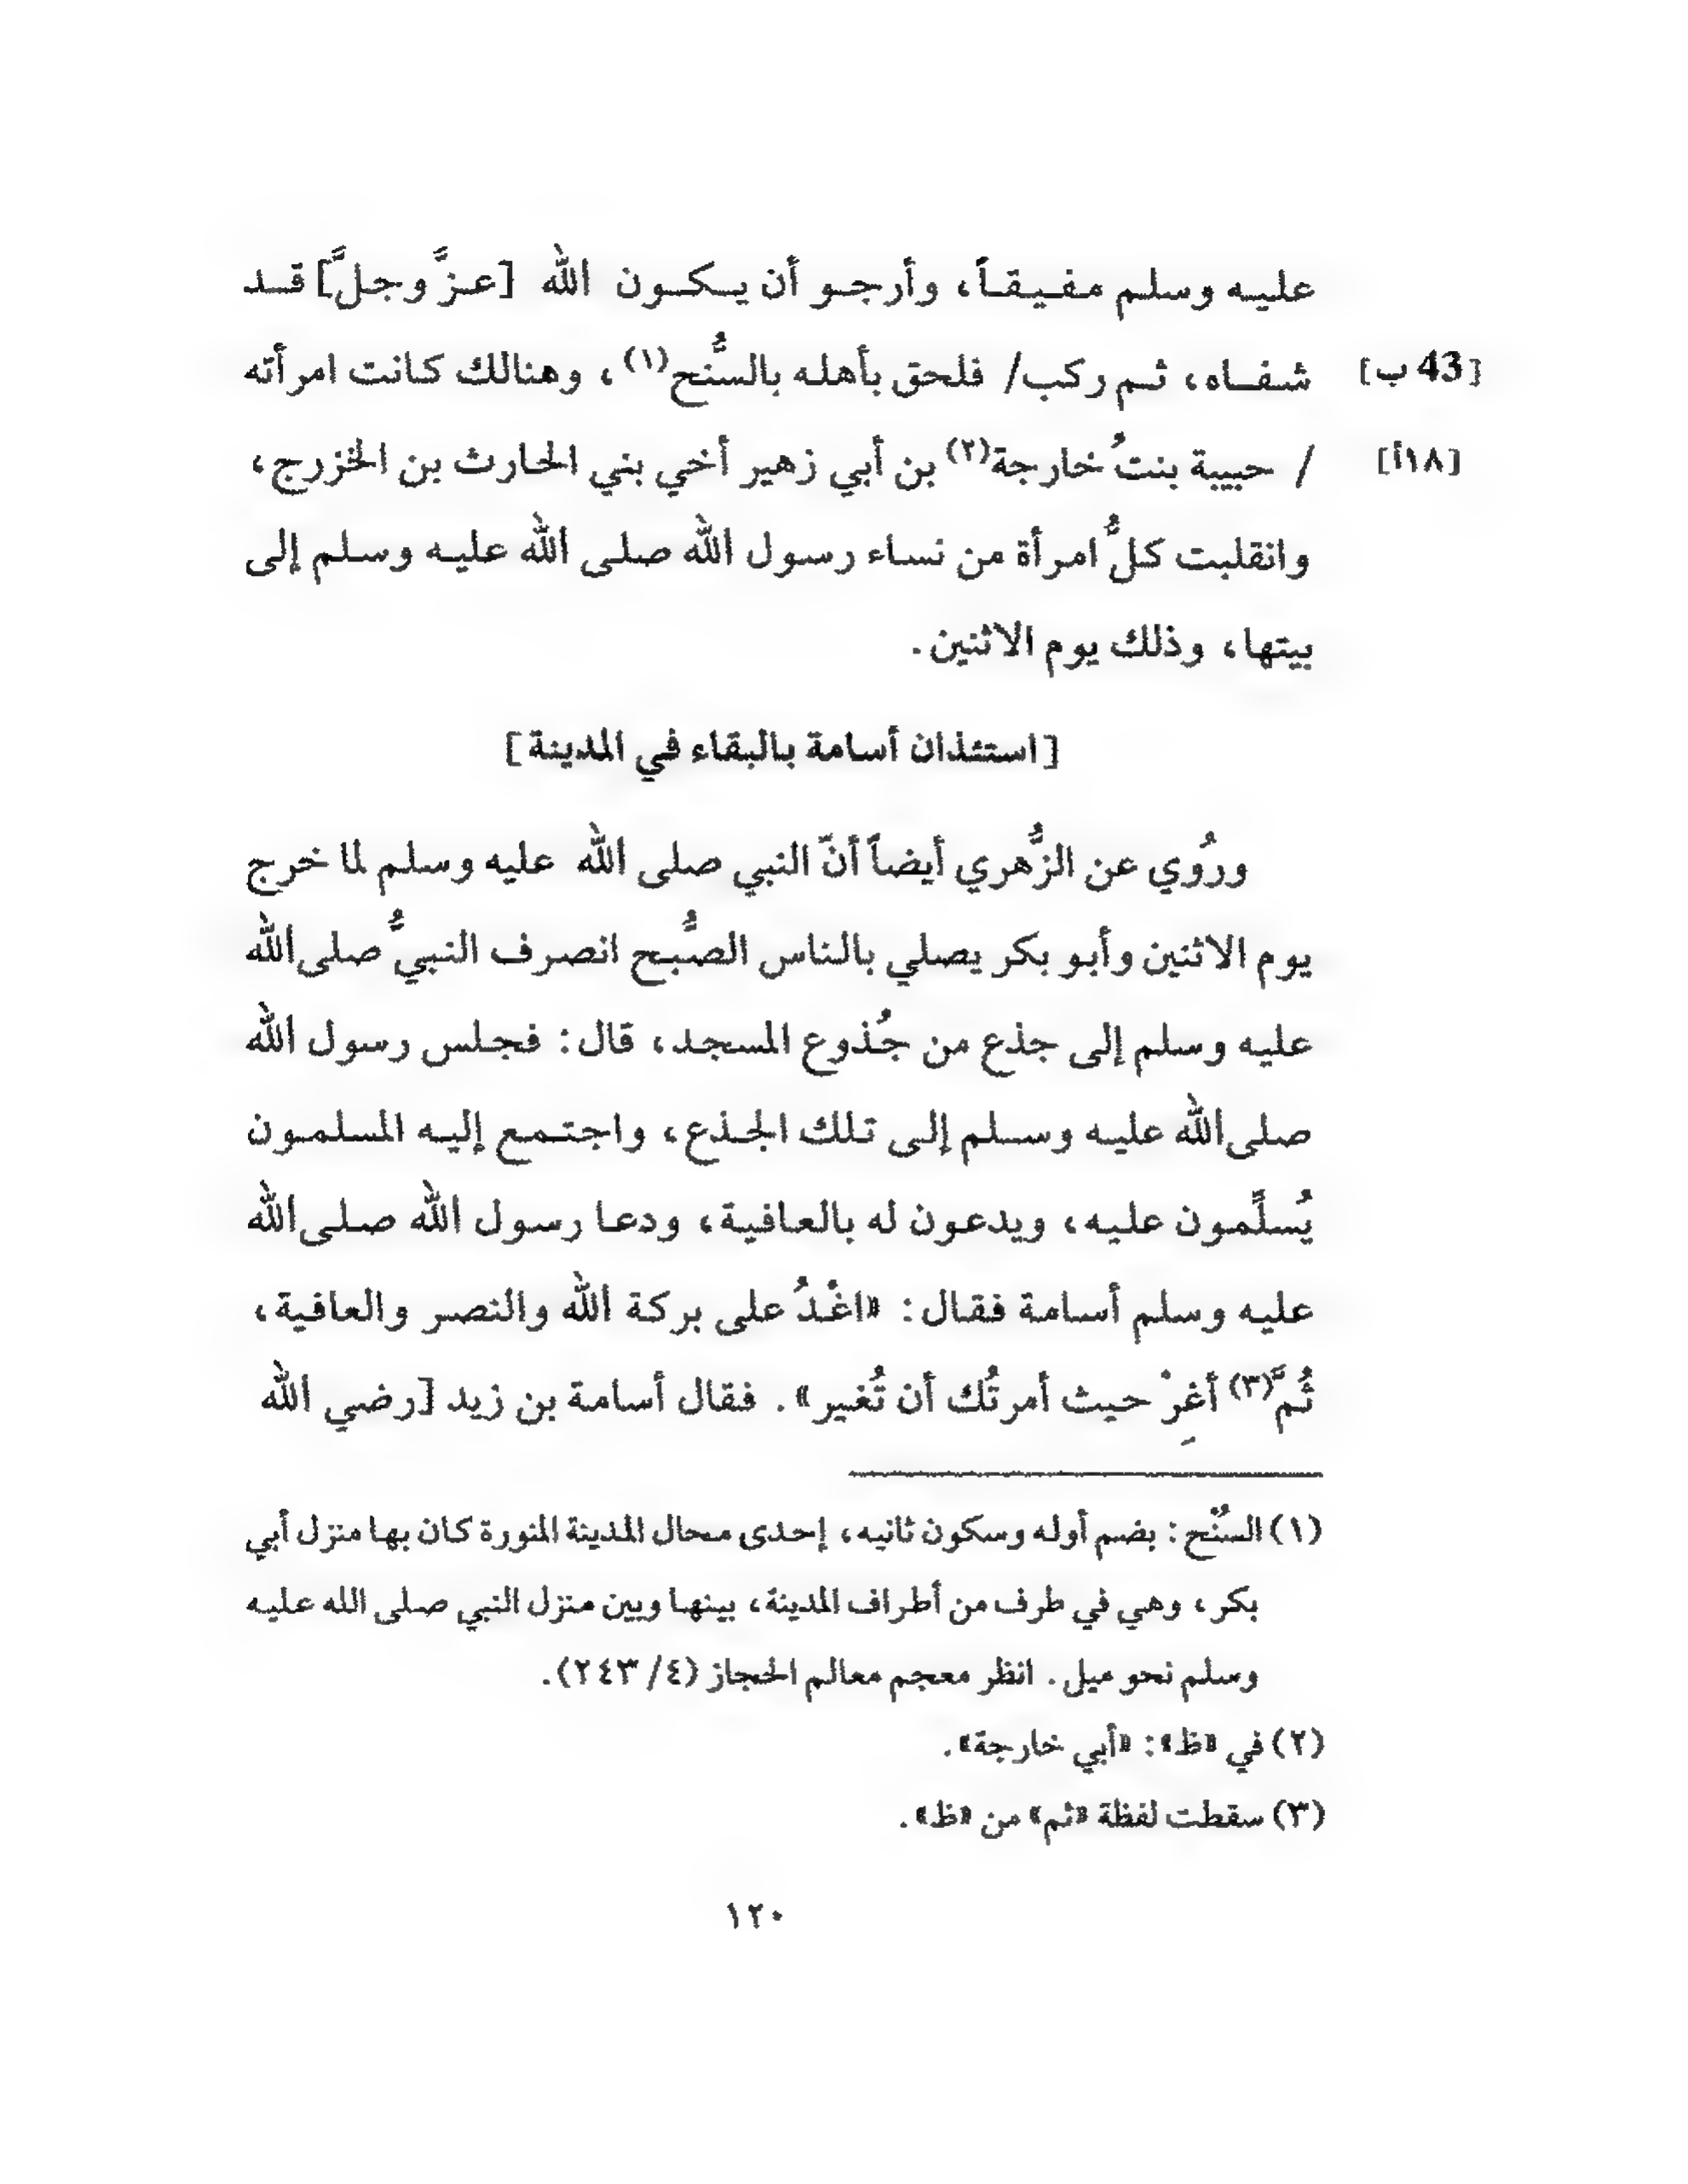 عليه وسلم مفيقاً، وأرجو أن يكون الله [عزَّ وجلَّ] قد
[43 ب] شفاه، ثم ركب/ فلحق بأهله بالسُّنح(١)، وهنالك كانت امرأته
[١٨أ] / حبيبة بنتُ خارجة(٢) بن أبي زهير أخي بني الحارث بن الخزرج،
وانقلبت كلُّ امرأة من نساء رسول الله صلى الله عليه وسلم إلى
بيتها، وذلك يوم الاثنين.
[استئذان أسامة بالبقاء في المدينة]
ورُوي عن الزُّهري أيضاً أنّ النبي صلى الله عليه وسلم لما خرج
يوم الاثنين وأبو بكر يصلي بالناس الصُّبح انصرف النبيُّ صلى الله
عليه وسلم إلى جذع من جُذوع المسجد، قال: فجلس رسول الله
صلى الله عليه وسلم إلى تلك الجذع، واجتمع إليه المسلمون
يُسلِّمون عليه، ويدعون له بالعافية، ودعا رسول الله صلى الله
عليه وسلم أسامة فقال: «اغْدُ على بركة الله والنصر والعافية،
ثُمَّ(٣) أغِرْ حيث أمرتُك أن تُغير». فقال أسامة بن زيد [رضي الله
(١) السُنْح: بضم أوله وسكون ثانيه، إحدى محال المدينة المنورة كان بها منزل أبي
بكر، وهي في طرف من أطراف المدينة، بينها وبين منزل النبي صلى الله عليه
وسلم نحو ميل. انظر معجم معالم الحجاز (٤/ ٢٤٣).
(٢) في «ظ»: «أبي خارجة».
(٣) سقطت لفظة «ثم» من «ظ».
١٢٠